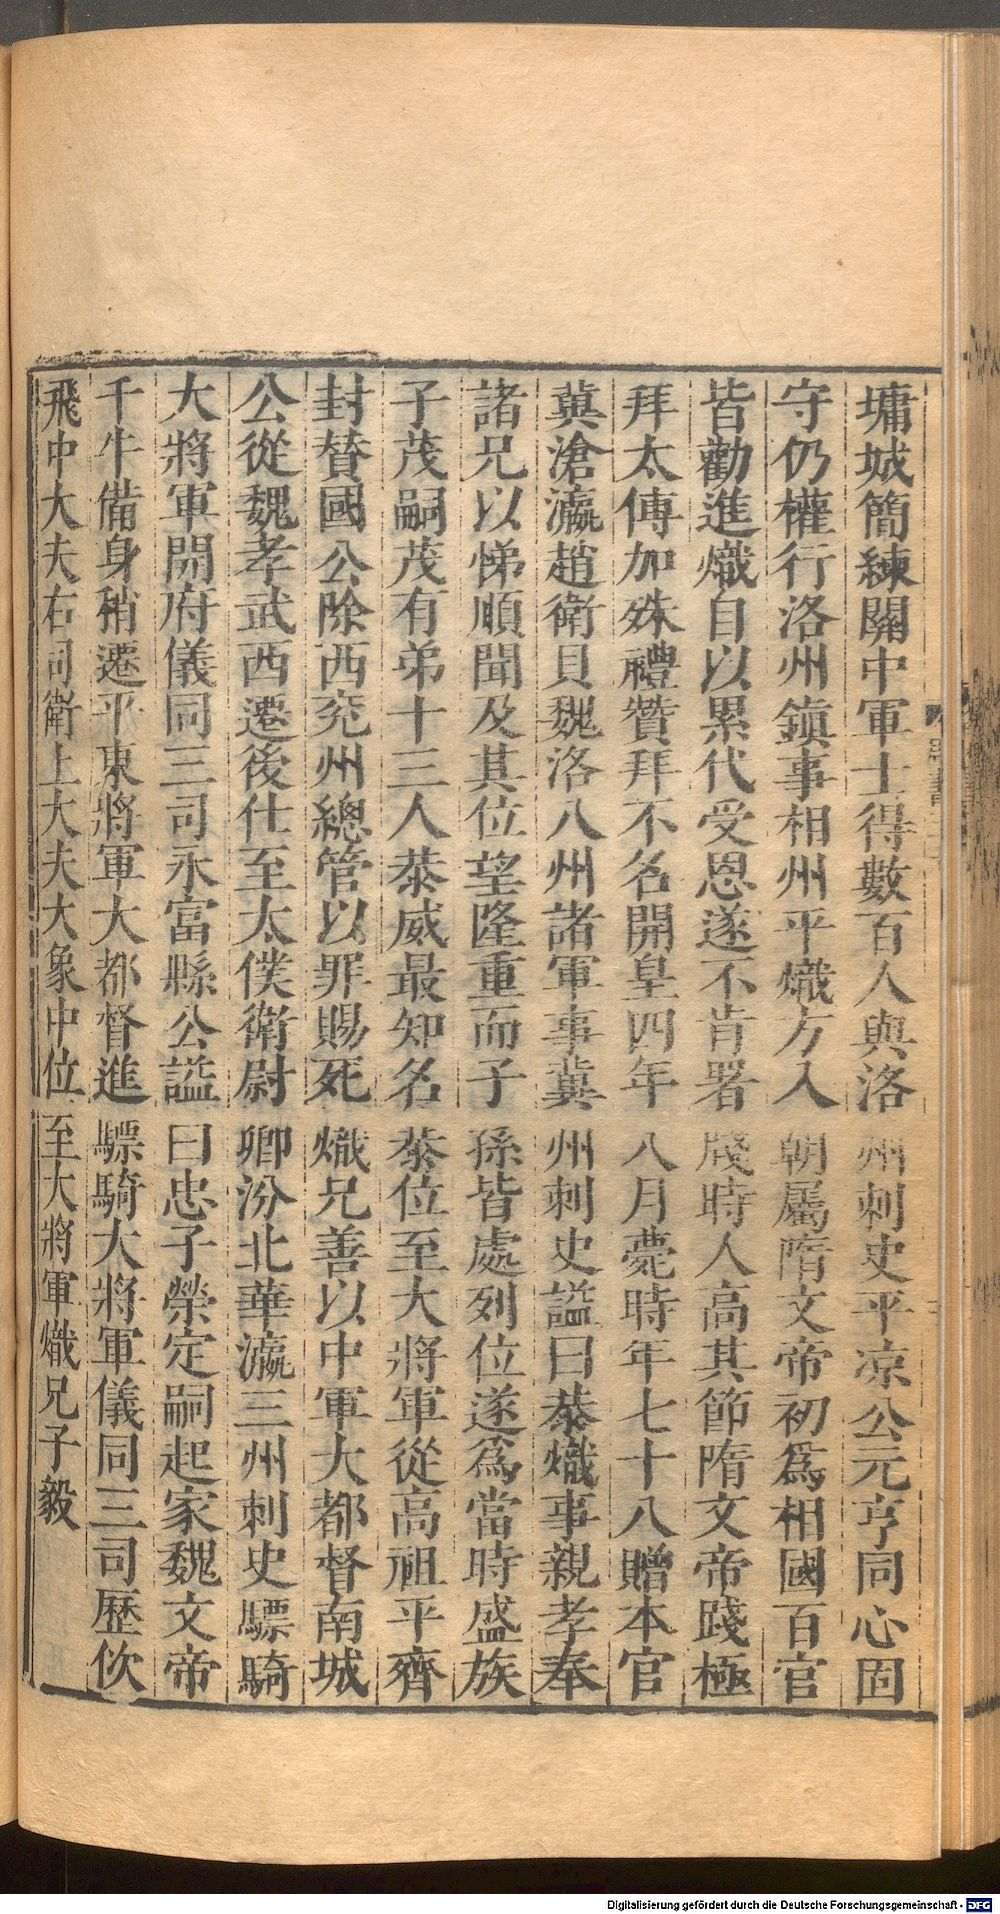 墉城簡練關中軍士得數百人與洛州刺史平凉公元亨同心固
守仍權行洛州鎮事相州平熾方入朝屬隋文帝初爲相國百官
皆勸進熾自以累代受恩遂不肯署牋時人高其節隋文帝踐極
拜太傅加殊禮贊拜不名開皇四年八月薨時年七十八贈本官
冀滄瀛趙衛貝魏洛八州諸軍事冀州刺史謚曰恭熾事親孝奉
諸兄以悌順聞及其位望隆重而子孫皆處列位遂爲當時盛族
子茂嗣茂有弟十三人恭威最知名恭位至大將軍從高祖平齊
封贊國公除西兖州總管以罪賜死熾兄善以中軍大都督南城
公從魏孝武西遷後仕至太僕衛尉卿汾北華瀛三州刺史驃騎
大將軍開府儀同三司永富縣公謚曰忠子榮定嗣起家魏文帝
千牛備身稍遷平東將軍大都督進驃騎大將軍儀同三司歷佽
飛中大夫右司衛上大夫大象中位至大將軍熾兄子毅
Digitalisierung gefördert durch die Deutsche Forschungsgemeinschaft - DFG